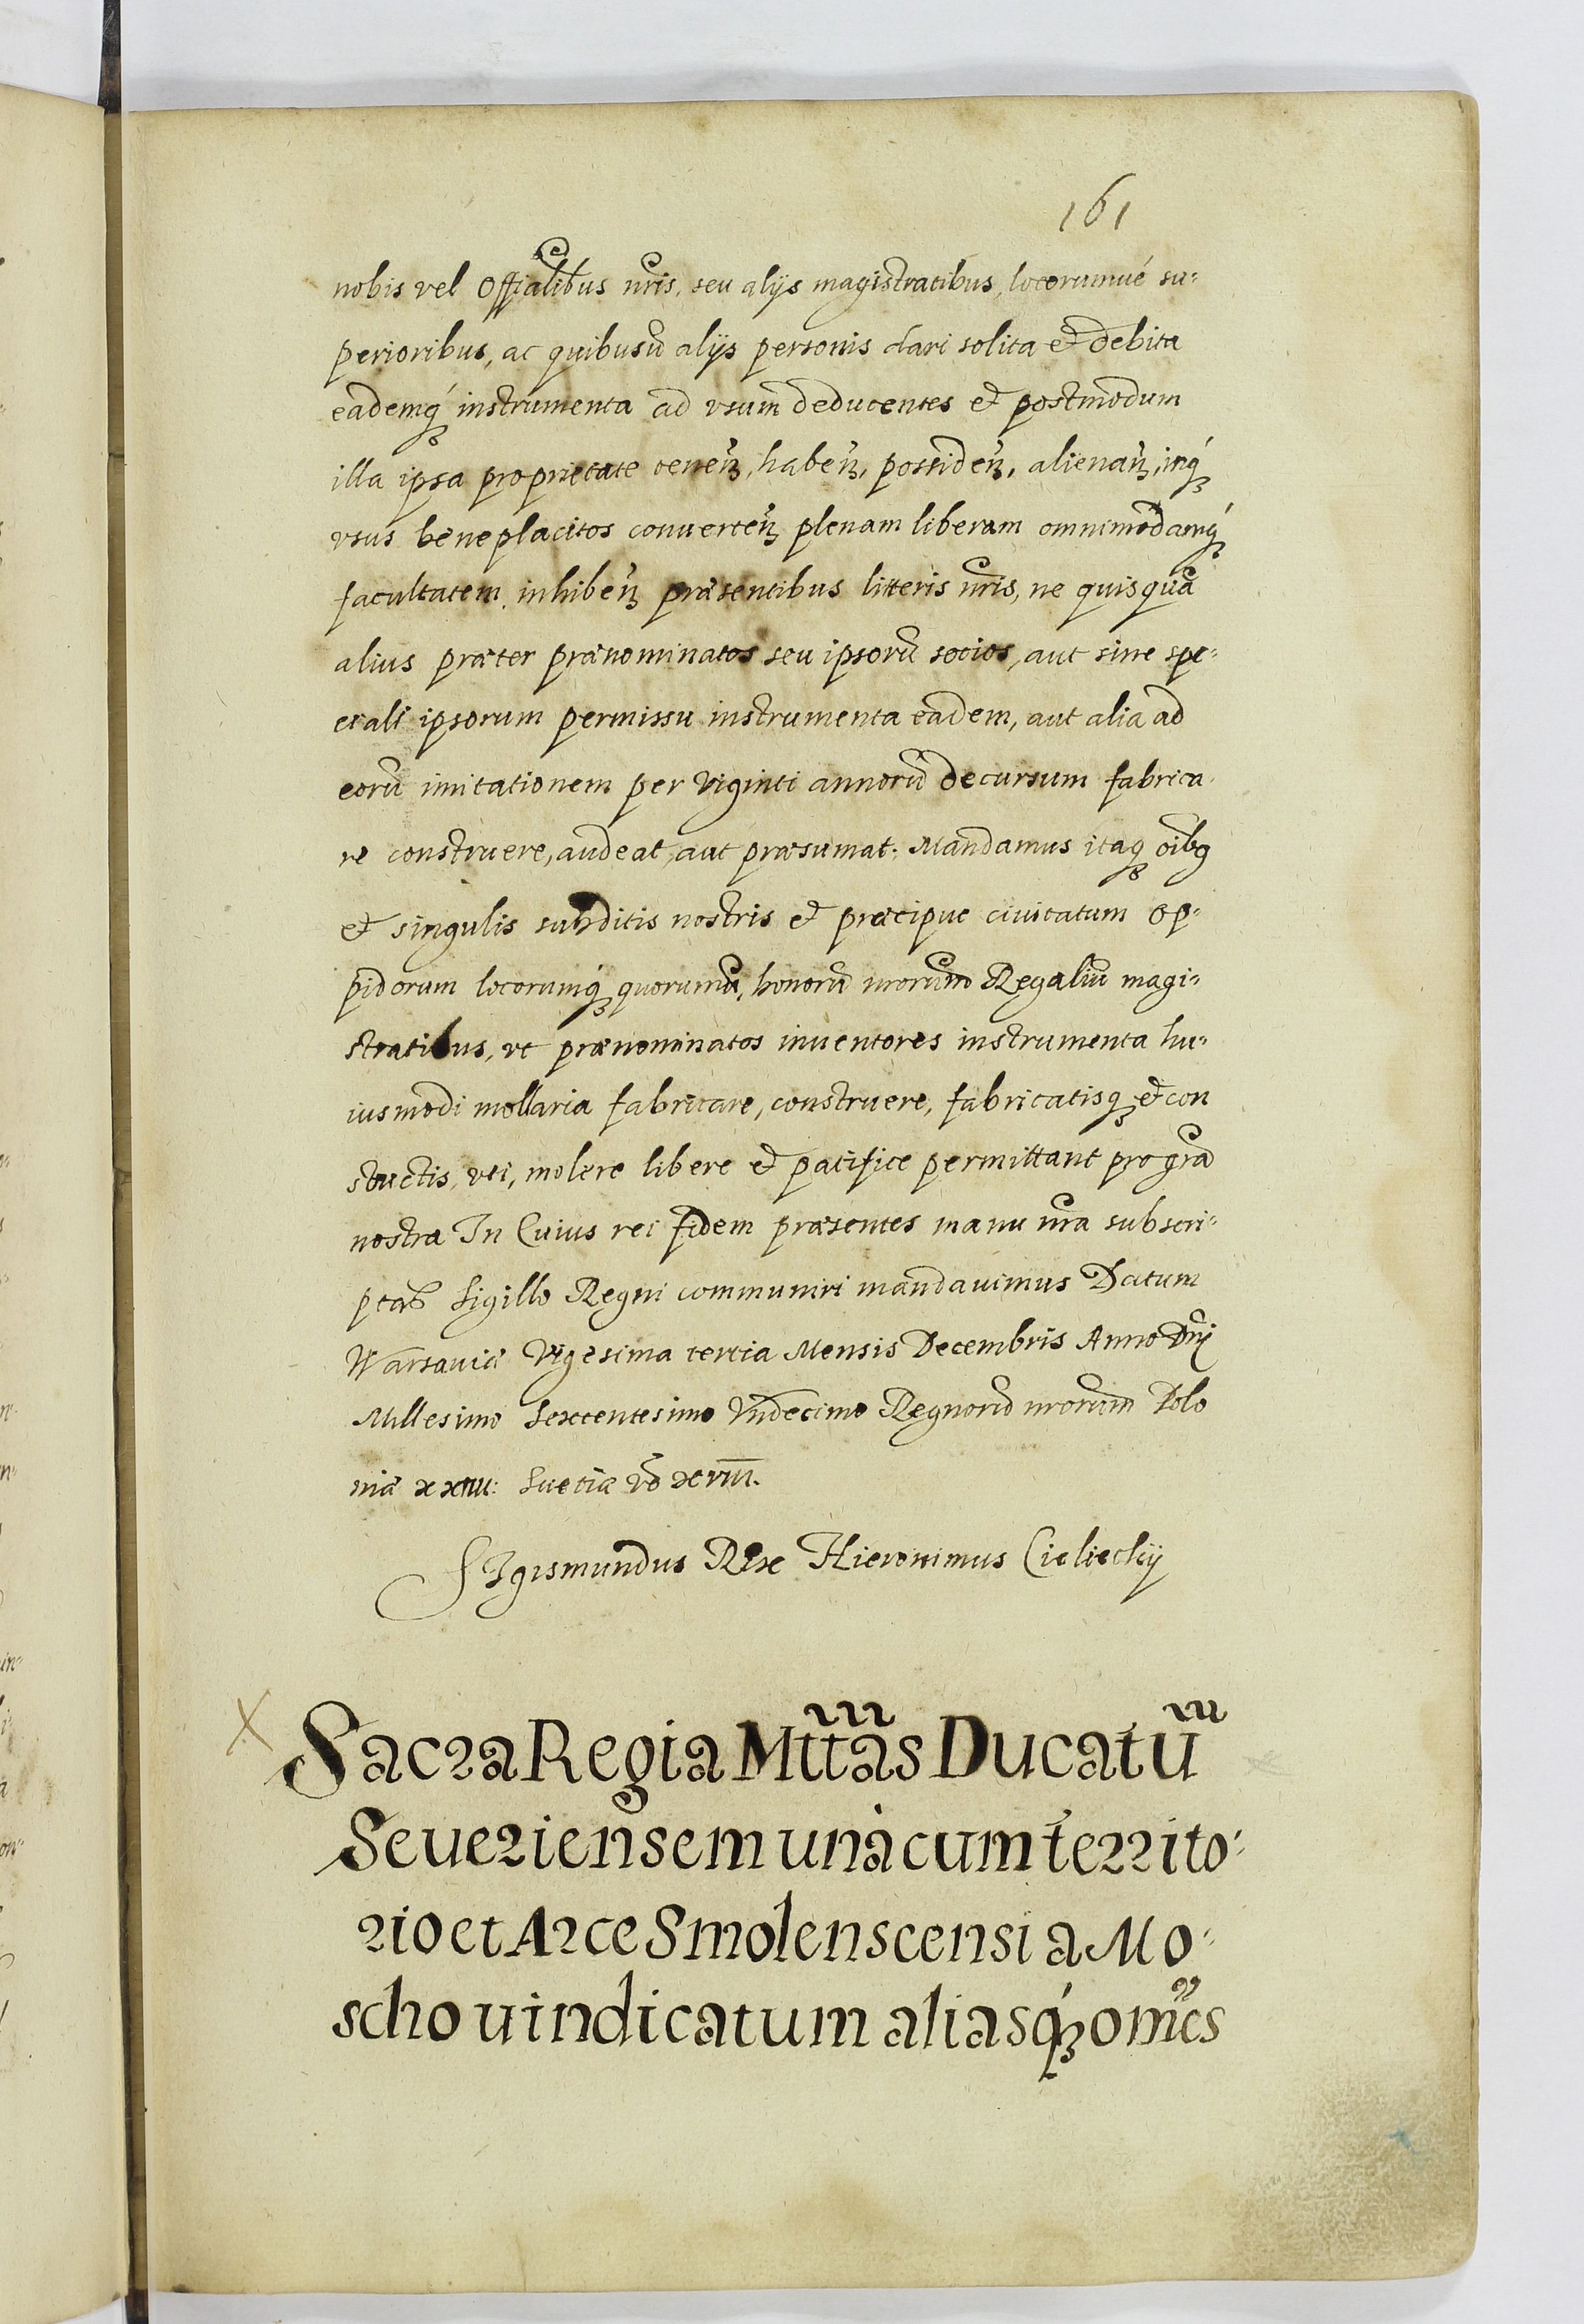 161
nobis vel Offialibus nris, seu alijs magistratibus, locorumué su-
perioribus, ac quibusũ alijs personis dari solita et debita
eademq́ꝫ instrumenta ad vsum deducentes et postmodum
illa ipsa proprietate tenen̄ꝫ, haben̄ꝫ, possiden̄ꝫ, alienan̄ꝫ, inq́ꝫ
vsus beneplacitos converten̄ꝫ plenam liberam omnimodamq́ꝫ
facultatem, inhiben̄ꝫ præsentibus litteris nris, ne quisquã
alius præter prænominatos seu ipsorũ socios, aut sine spe-
ciali ipsorum permissu instrumenta eadem, aut alia ad
eorũ imitationem per Viginti annorũ decursum fabrica-
re construere, audeat, aut præsumat. Mandamus itaqꝫ oibꝯ
et singulis subditis nostris et præcipue civitatum op-
pidorum locorumq́ꝫ quorumũ, bonorũ nrorum Regaliũ magi-
stratibus, vt prænominatos inventores instrumenta hu-
iusmodi mollaria fabricare, construere, fabricatisqꝫ et con
structis, vti, molere libere et pacifice permittant pro grã
nostra In Cuius rei fidem præsentes manu nra subscri-
ptas Sigillo Regni communiri mandavimus Datum
Warsaviæ Vigesima tertia Mensis Decembris Anno Dnj
Millesimo Sexcentesimo Vndecimo Regnorũ nrorum Polo
niæ xxiiii: Sueciæ vo xviii.
Sigismundus Rex Hieronimus Cieliechij
X Sacra Regia Mttãs Ducatũ
Severiensem unà cum territo-
rio et Arce Smolenscensi a Mo-
scho uindicatum aliasq́ꝫ omẽs